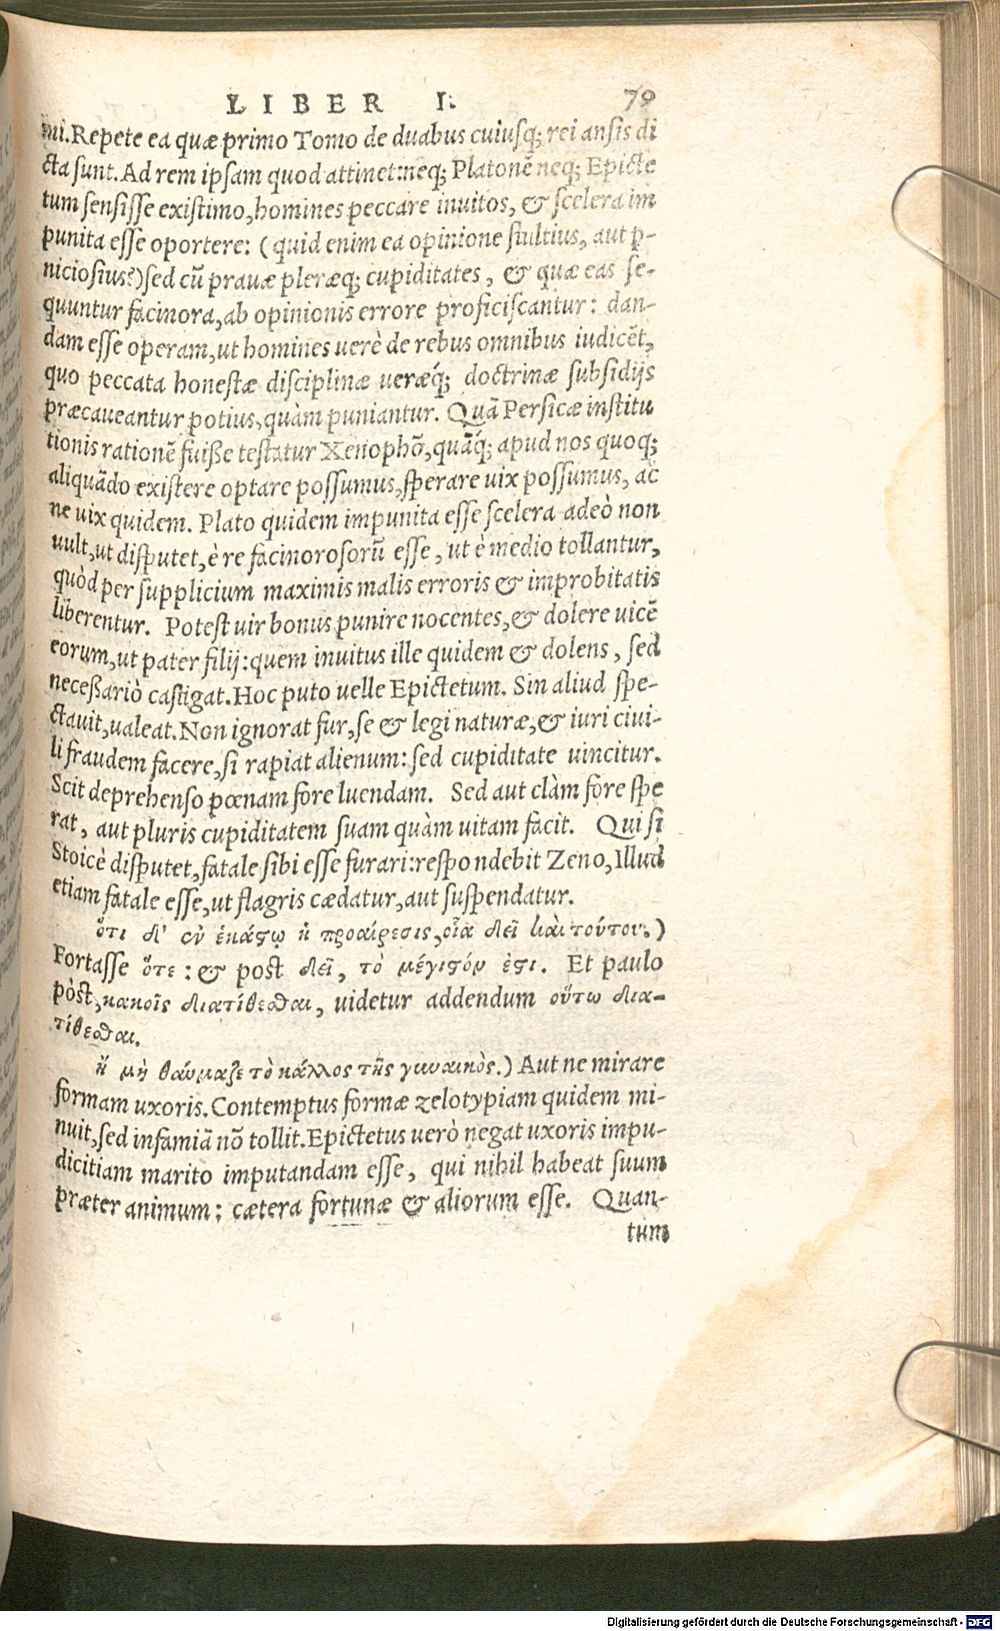 LIBER I. 79
mi. Repete ea quæ primo Tomo de duabus cuiusq; rei ansis di
cta sunt. Ad rem ipsam quod attinet: neq; Platonē neq; Epicte
tum sensisse existimo, homines peccare inuitos, & scelera im
punita esse oportere: (quid enim ea opinione stultius, aut p-
niciosius?) sed cū prauæ pleræq; cupiditates, & quæ eas se-
quuntur facinora, ab opinionis errore proficiscantur: dan-
dam esse operam, ut homines uerè de rebus omnibus iudicēt,
quo peccata honestæ disciplinæ ueræq́; doctrinæ subsidijs
præcaueantur potius, quàm puniantur. Quā Persicæ institu
tionis rationē fuiße testatur Xenophō, quāq́; apud nos quoq;
aliquādo existere optare possumus, sperare uix possumus, ac
ne uix quidem. Plato quidem impunita esse scelera adeò non
uult, ut disputet, è re facinorosorū esse, ut è medio tollantur,
quòd per supplicium maximis malis erroris & improbitatis
liberentur. Potest uir bonus punire nocentes, & dolere uicē
eorum, ut pater filij: quem inuitus ille quidem & dolens, sed
neceßariò castigat. Hoc puto uelle Epictetum. Sin aliud spe-
ctauit, ualeat. Non ignorat fur, se & legi naturæ, & iuri ciui-
li fraudem facere, si rapiat alienum: sed cupiditate uincitur.
Scit deprehenso pœnam fore luendam. Sed aut clàm fore spe
rat, aut pluris cupiditatem suam quàm uitam facit. Qui si
Stoicè disputet, fatale sibi esse furari: respondebit Zeno, Illud
etiam fatale esse, ut flagris cædatur, aut suspendatur.
ὅτι δ' οὐ ἑκάστῳ ἡ προαίρεσις, οἵα δεῖ καὶ τούτου.)
Fortasse ὅτε: & post δεῖ, τὸ μέγιστόν ἐστι. Et paulo
pòst, κακοῖς διατίθεσθαι, uidetur addendum οὕτω δια-
τίθεσθαι.
ἢ μὴ θαύμαζε τὸ κάλλος τῆς γυναικὸς.) Aut ne mirare
formam uxoris. Contemptus formæ zelotypiam quidem mi-
nuit, sed infamiā nō tollit. Epictetus uerò negat uxoris impu-
dicitiam marito imputandam esse, qui nihil habeat suum
præter animum: cætera fortunæ & aliorum esse. Quan-
tum
Digitalisierung gefördert durch die Deutsche Forschungsgemeinschaft - DFG